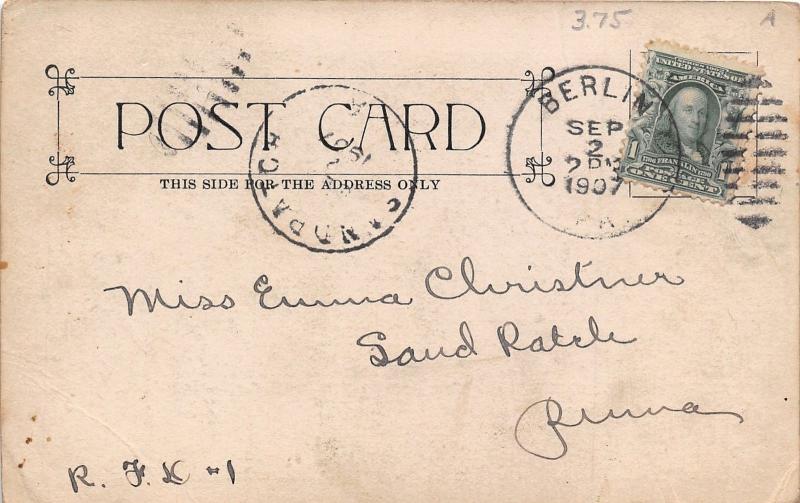 3.75 A
POST CARD
THIS SIDE FOR THE ADDRESS ONLY
SANDPATCH
PA
1907
BERLIN
SEP
2
2 PM
1907
PA
UNITED STATES OF
AMERICA
1 1706 FRANKLIN 1790 1
POSTAGE
ONE CENT
Miss Emma Christner
Sand Patch
Penna
R. F. D #1